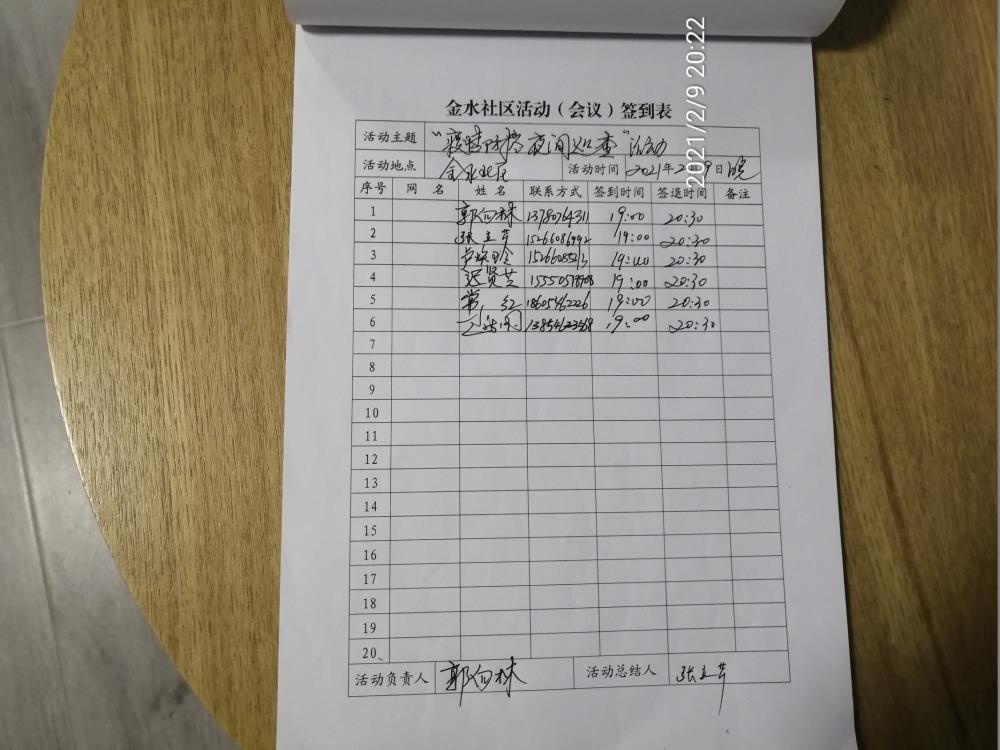 2021/2/9 20:22
金水社区活动（会议）签到表
活动主题 “疫情防控夜间巡查”活动
活动地点 金水北区 活动时间 2021年2月9日晚
序号 网 名 姓 名 联系方式 签到时间 签退时间 备注
1 郭向林 13780764311 19:00 20:30
2 张立芹 15266086992 19:00 20:30
3 19:00 20:30
4 迟贤芸 19:00 20:30
5 常红 18605462226 19:00 20:30
6 19:00 20:30
7
8
9
10
11
12
13
14
15
16
17
18
19
20
活动负责人 郭向林 活动总结人 张立芹